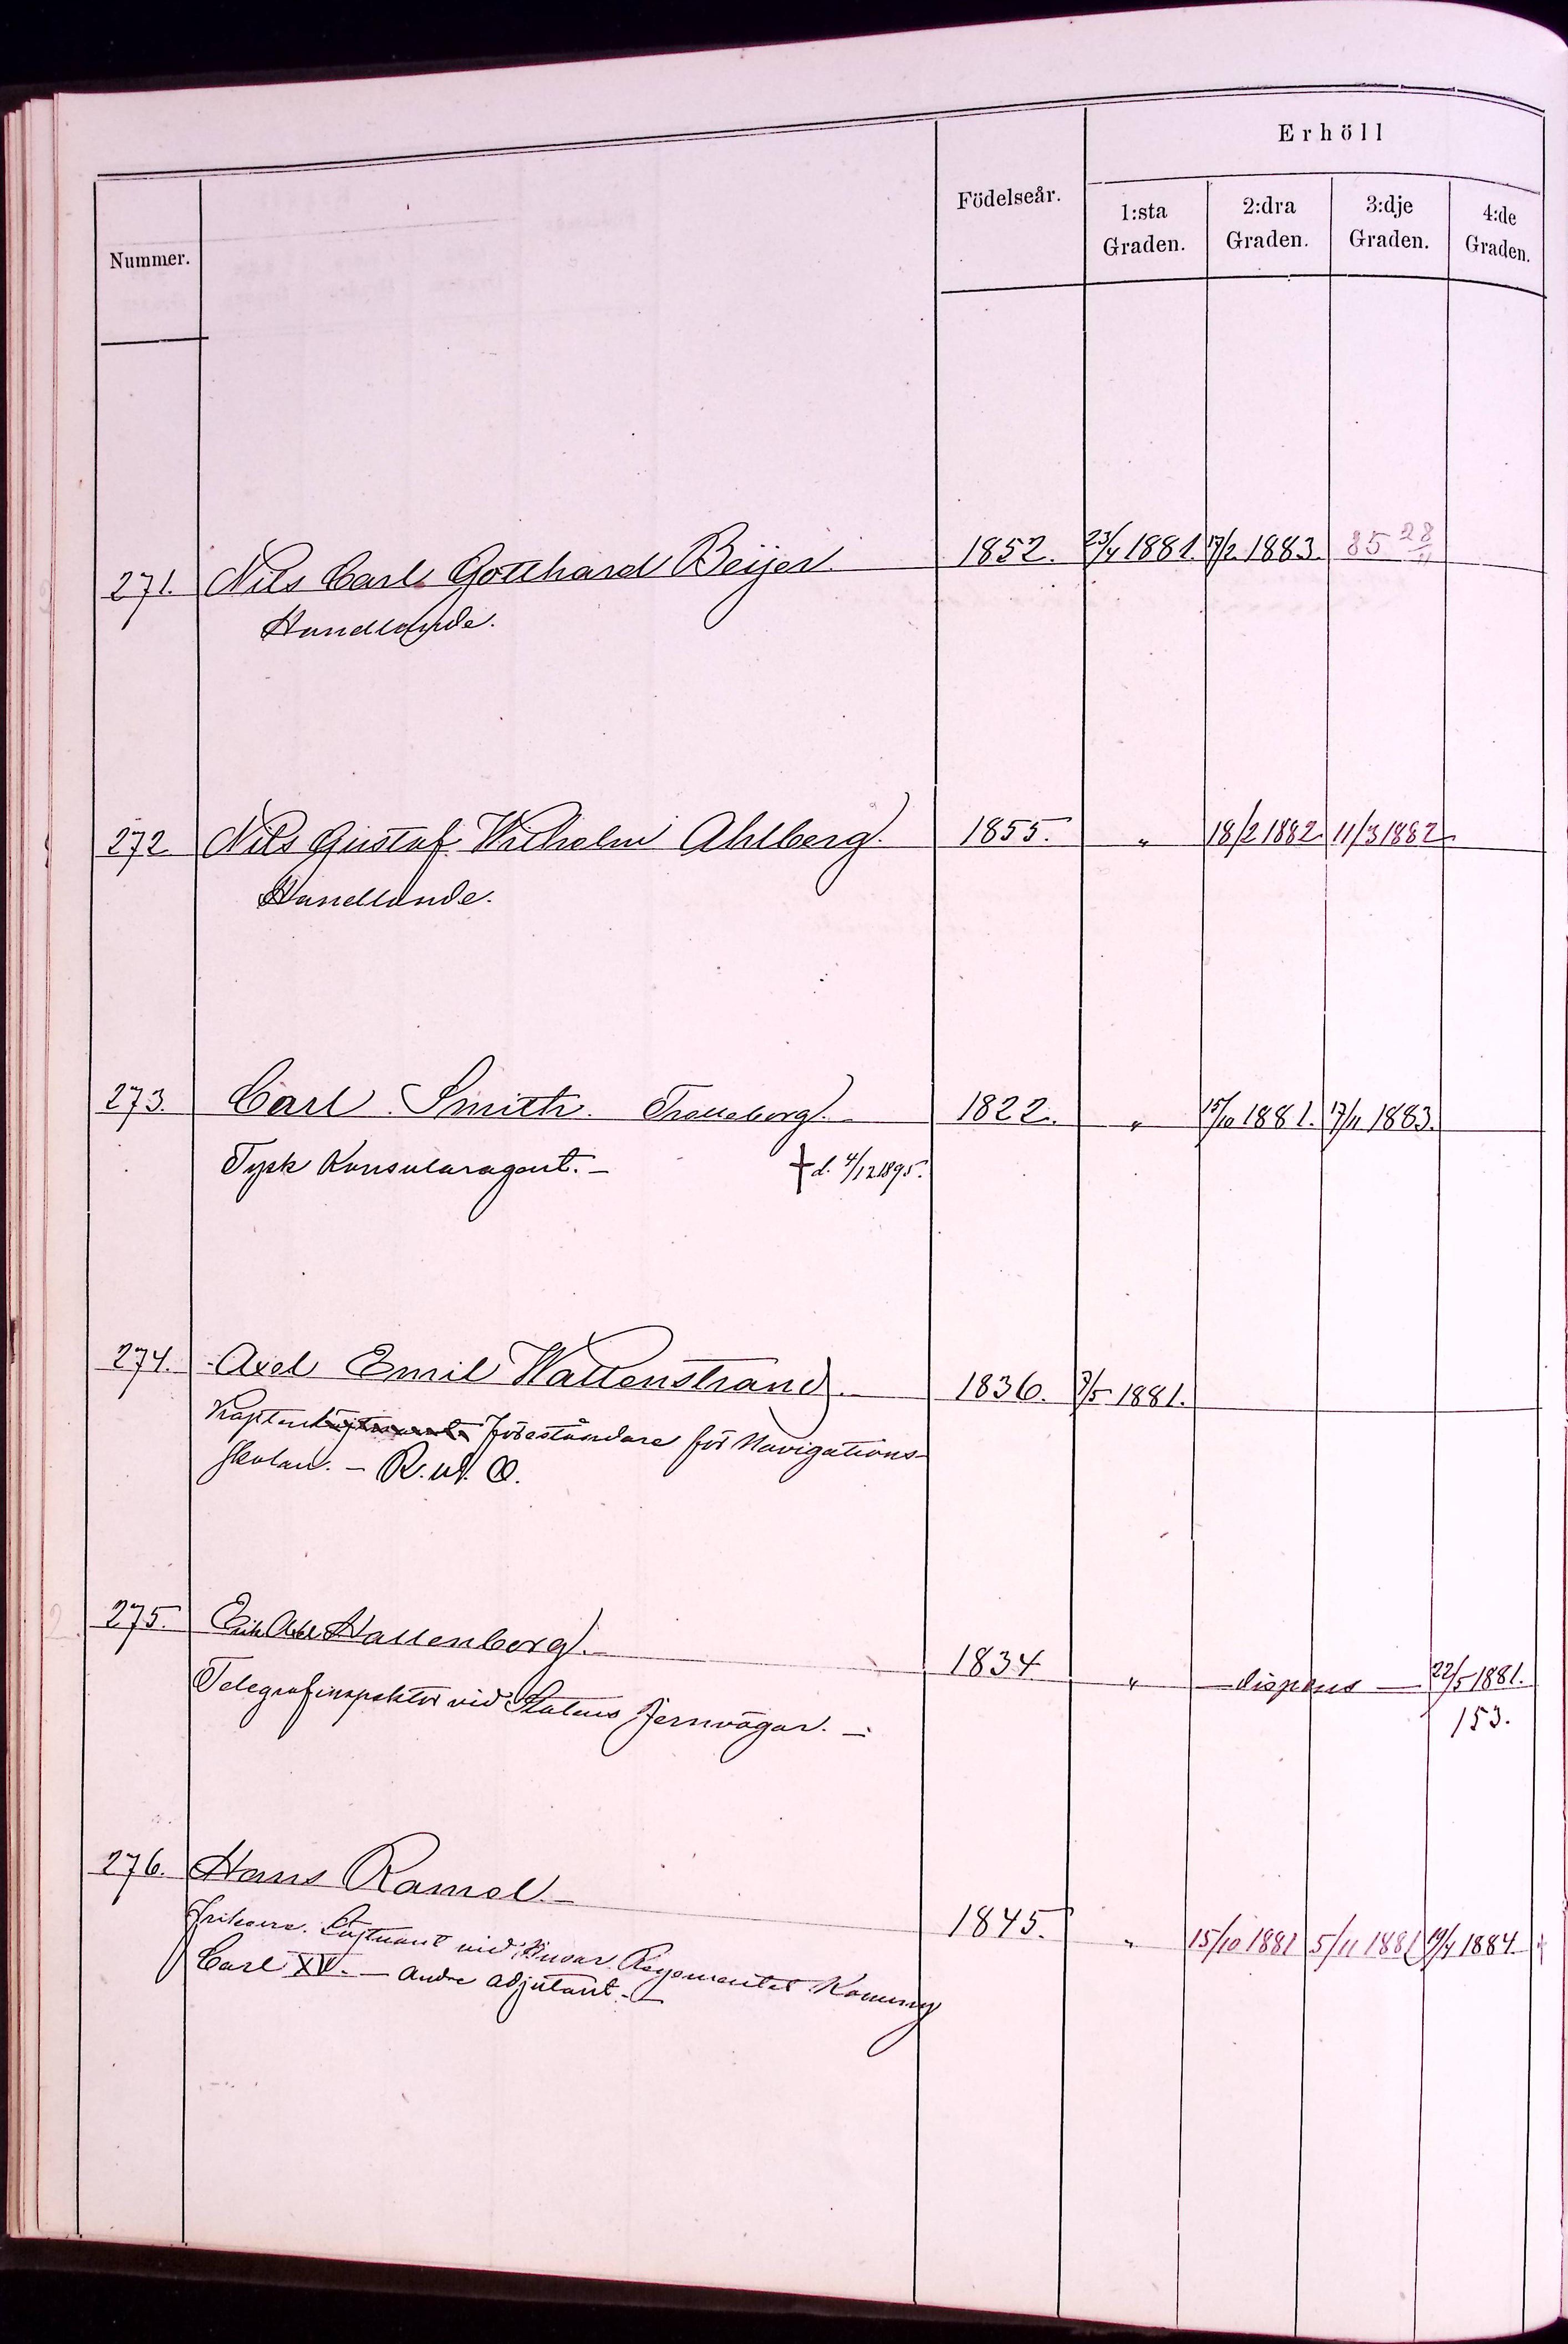 Erhöll
Födelseår.
1:sta Graden. 2:dra Graden. 3:dje Graden. 4:de Graden.
Nummer.
271. Nils Carl Gotthard Beijer. 1852. 23/4 1881. 17/2 1883. 85 28/11
Handlande.
272. Nils Gustaf Wilhelm Ahlberg. 1855. " 18/2 1882 11/3 1882
Handlande.
273. Carl Smith. Trelleborg. 1822. " 15/10 1881. 17/11 1883.
Tysk Konsularagent. — † d. 4/12 1895.
274. Axel Emil Wallenstrand. 1836. 7/5 1881.
Kapten föreståndare för Navigations-
skolan. — R.W.O.
275. Erik Axel Hallenborg. — 1834 " — dispens — 22/5 1881.
Telegrafinspektor vid Statens Jernvägar. — 153.
276. Hans Ramel. — 1845. " 15/10 1881 5/11 1881 19/4 1884.
Friherre. Löjtnant vid Husar Regementet Konung
Carl XV. — Andre adjutant. —